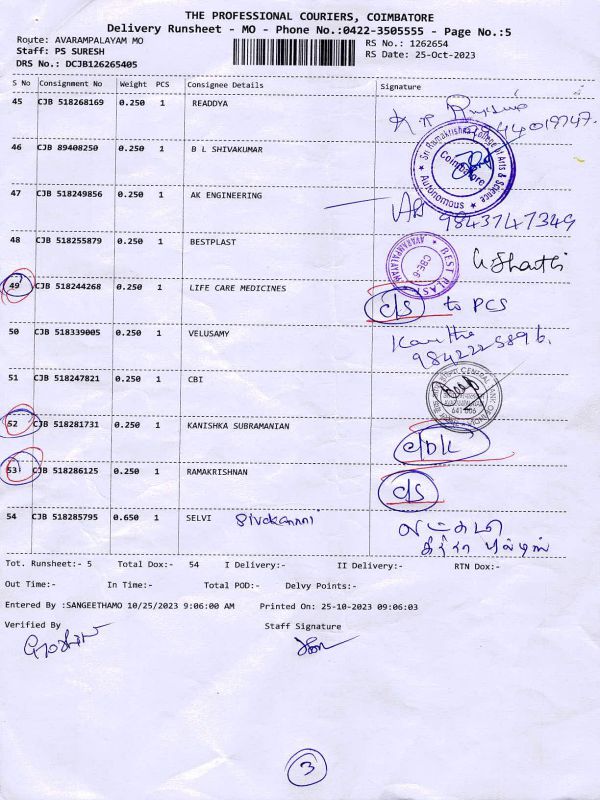 THE PROFESSIONAL COURIERS, COIMBATORE
Delivery Runsheet - MO - Phone No.:0422-3505555 - Page No.:5
Route: AVARAMPALAYAM MO
RS No.: 1262654
Staff: PS SURESH
RS Date: 25-Oct-2023
DRS No.: DCJB126265405
S No Consignment No Weight PCS Consignee Details Signature
45 CJB 518268169 0.250 1 READDYA
46 CJB 89408250 0.250 1 B L SHIVAKUMAR
Sri Ramakrishna College of Arts & Science
Coimbatore
Autonomous
47 CJB 518249856 0.250 1 AK ENGINEERING
9843747349
48 CJB 518255879 0.250 1 BESTPLAST
BEST PLAST
CBE-6
AVARAMPALAYAM
49 CJB 518244268 0.250 1 LIFE CARE MEDICINES c/s to PCS
50 CJB 518339005 0.250 1 VELUSAMY
51 CJB 518247821 0.250 1 CBI
CENTRAL BANK OF INDIA
641 006
52 CJB 518281731 0.250 1 KANISHKA SUBRAMANIAN c/DK
53 CJB 518286125 0.250 1 RAMAKRISHNAN c/s
54 CJB 518285795 0.650 1 SELVI
Tot. Runsheet:- 5 Total Dox:- 54 I Delivery:- II Delivery:- RTN Dox:-
Out Time:- In Time:- Total POD:- Delvy Points:-
Entered By :SANGEETHAMO 10/25/2023 9:06:00 AM Printed On: 25-10-2023 09:06:03
Verified By Staff Signature
3